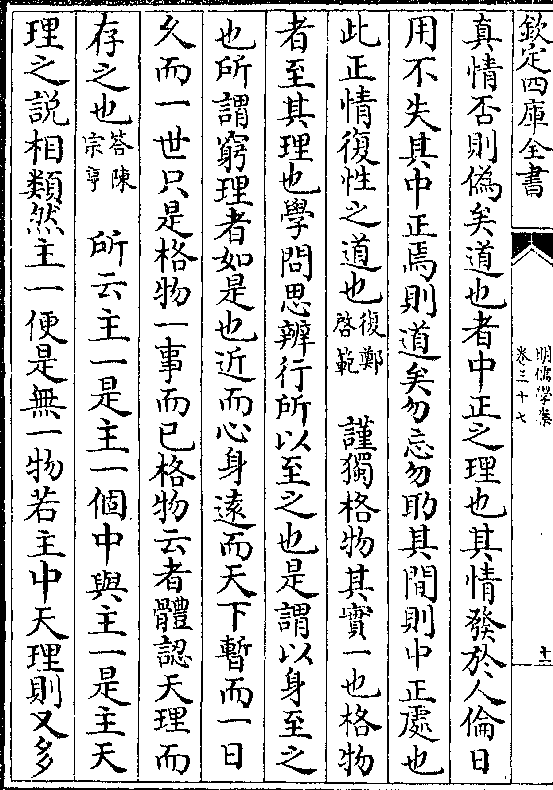 欽定四庫全書
明儒學案
卷三十七
十一
真情否則偽矣道也者中正之理也其情發於人倫日
用不失其中正焉則道矣勿忘勿助其間則中正處也
此正情復性之道也復鄭啓範 謹獨格物其實一也格物
者至其理也學問思辨行所以至之也是謂以身至之
也所謂窮理者如是也近而心身遠而天下暫而一日
久而一世只是格物一事而已格物云者體認天理而
存之也答陳宗亨 所云主一是主一個中與主一是主天
理之說相類然主一便是無一物若主中天理則又多